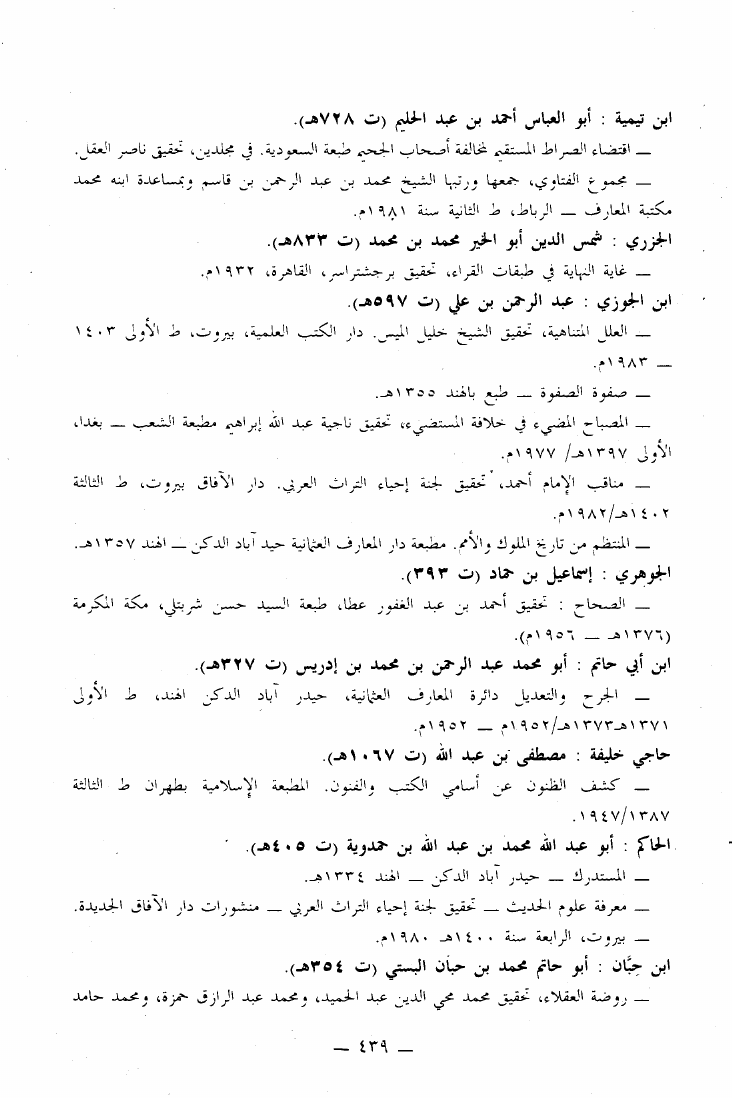 ابن تيمية : أبو العباس أحمد بن عبد الحليم (ت ٧٢٨هـ).
— اقتضاء الصراط المستقيم لمخالفة أصحاب الجحيم طبعة السعودية. في مجلدين، تحقيق ناصر العقل.
— مجموع الفتاوي، جمعها ورتبها الشيخ محمد بن عبد الرحمن بن قاسم وبمساعدة ابنه محمد
مكتبة المعارف — الرباط، ط الثانية سنة ١٩٨١م.
الجزري : شمس الدين أبو الخير محمد بن محمد (ت ٨٣٣هـ).
— غاية النهاية في طبقات القراء، تحقيق برجشتراسر، القاهرة، ١٩٣٢م.
ابن الجوزي : عبد الرحمن بن علي (ت ٥٩٧هـ).
— العلل المتناهية، تحقيق الشيخ خليل الميس. دار الكتب العلمية، بيروت، ط الأولى ١٤٠٣
— ١٩٨٣م.
— صفوة الصفوة — طبع بالهند ١٣٥٥هـ.
— المصباح المضيء في خلافة المستضيء، تحقيق ناجية عبد الله إبراهيم مطبعة الشعب — بغدا،
الأولى ١٣٩٧هـ/ ١٩٧٧م.
— مناقب الإمام أحمد، تحقيق لجنة إحياء التراث العربي. دار الآفاق بيروت، ط الثالثة
١٤٠٢هـ/١٩٨٢م.
— المنتظم من تاريخ الملوك والأمم. مطبعة دار المعارف العثمانية حيد آباد الدكن — الهند ١٣٥٧هـ.
الجوهري : إسماعيل بن حماد (ت ٣٩٣).
— الصحاح : تحقيق أحمد بن عبد الغفور عطا، طبعة السيد حسن شربتلي، مكة المكرمة
(١٣٧٦هـ — ١٩٥٦م).
ابن أبي حاتم : أبو محمد عبد الرحمن بن محمد بن إدريس (ت ٣٢٧هـ).
— الجرح والتعديل دائرة المعارف العثمانية، حيدر آباد الدكن الهند، ط الأولى
١٣٧١هـ١٣٧٣هـ/١٩٥٢م — ١٩٥٢م.
حاجي خليفة : مصطفى بن عبد الله (ت ١٠٦٧هـ).
— كشف الظنون عن أسامي الكتب والفنون. المطبعة الإسلامية بطهران ط الثالثة
١٩٤٧/١٣٨٧.
الحاكم : أبو عبد الله محمد بن عبد الله بن حمدوية (ت ٤٠٥هـ).
— المستدرك — حيدر آباد الدكن — الهند ١٣٣٤هـ.
— معرفة علوم الحديث — تحقيق لجنة إحياء التراث العربي — منشورات دار الآفاق الجديدة.
— بيروت، الرابعة سنة ١٤٠٠هـ ١٩٨٠م.
ابن حِبَّان : أبو حاتم محمد بن حبان البستي (ت ٣٥٤هـ).
— روضة العقلاء، تحقيق محمد محي الدين عبد الحميد، ومحمد عبد الرازق حمزة، ومحمد حامد
— ٤٣٩ —